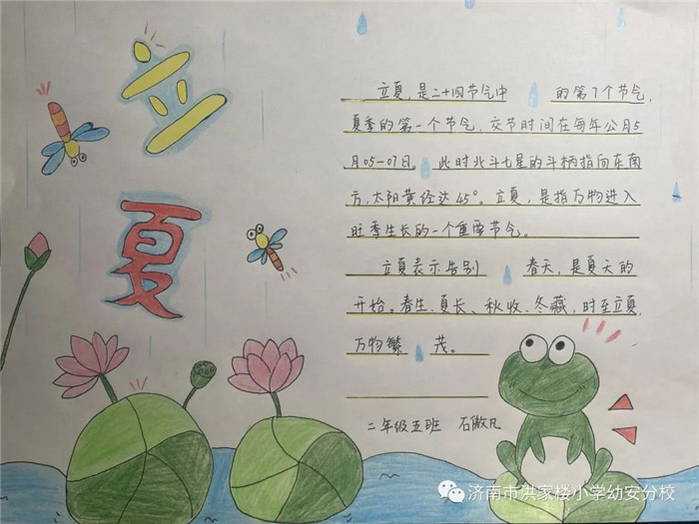 立夏
立夏，是二十四节气中 的第7个节气，
夏季的第一个节气，交节时间在每年公月5
月05-07日。此时北斗七星的斗柄指向东南
方，太阳黄经达45°。立夏，是指万物进入
旺季生长的一个重要节气。
立夏表示告别 春天，是夏天的
开始。春生、夏长、秋收、冬藏，时至立夏，
万物繁 茂。
二年级五班 石傲凡
济南市洪家楼小学幼安分校